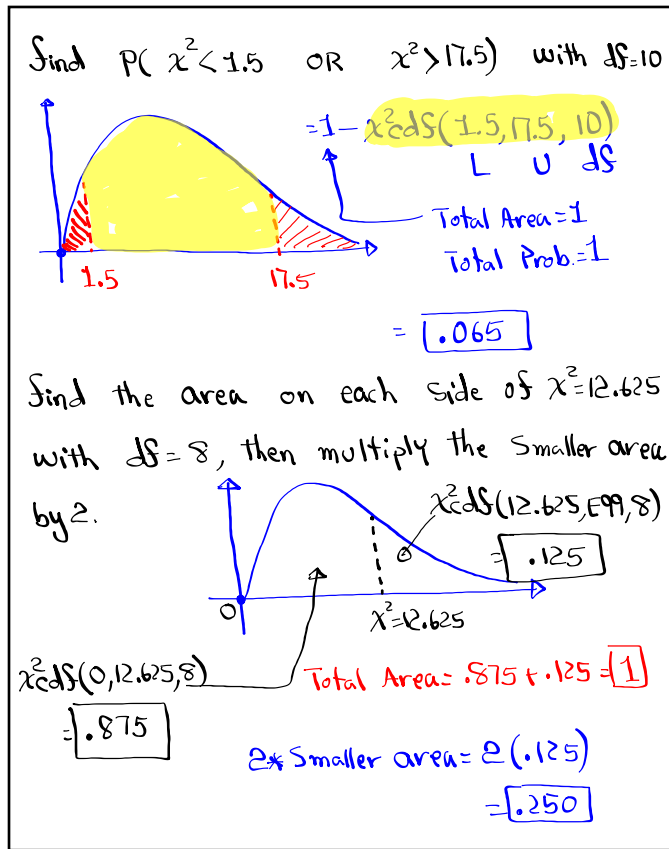 find P( χ²<1.5 OR χ²>17.5) with df=10
=1-χ²cdf(1.5,17.5,10)
L U df
Total Area=1
Total Prob.=1
1.5 17.5
= .065
find the area on each side of χ²=12.625
with df=8, then multiply the smaller area
by 2.
χ²cdf(12.625,E99,8)
= .125
0 χ²=12.625
χ²cdf(0,12.625,8)
= .875
Total Area= .875+.125=1
2* Smaller area= 2(.125)
= .250